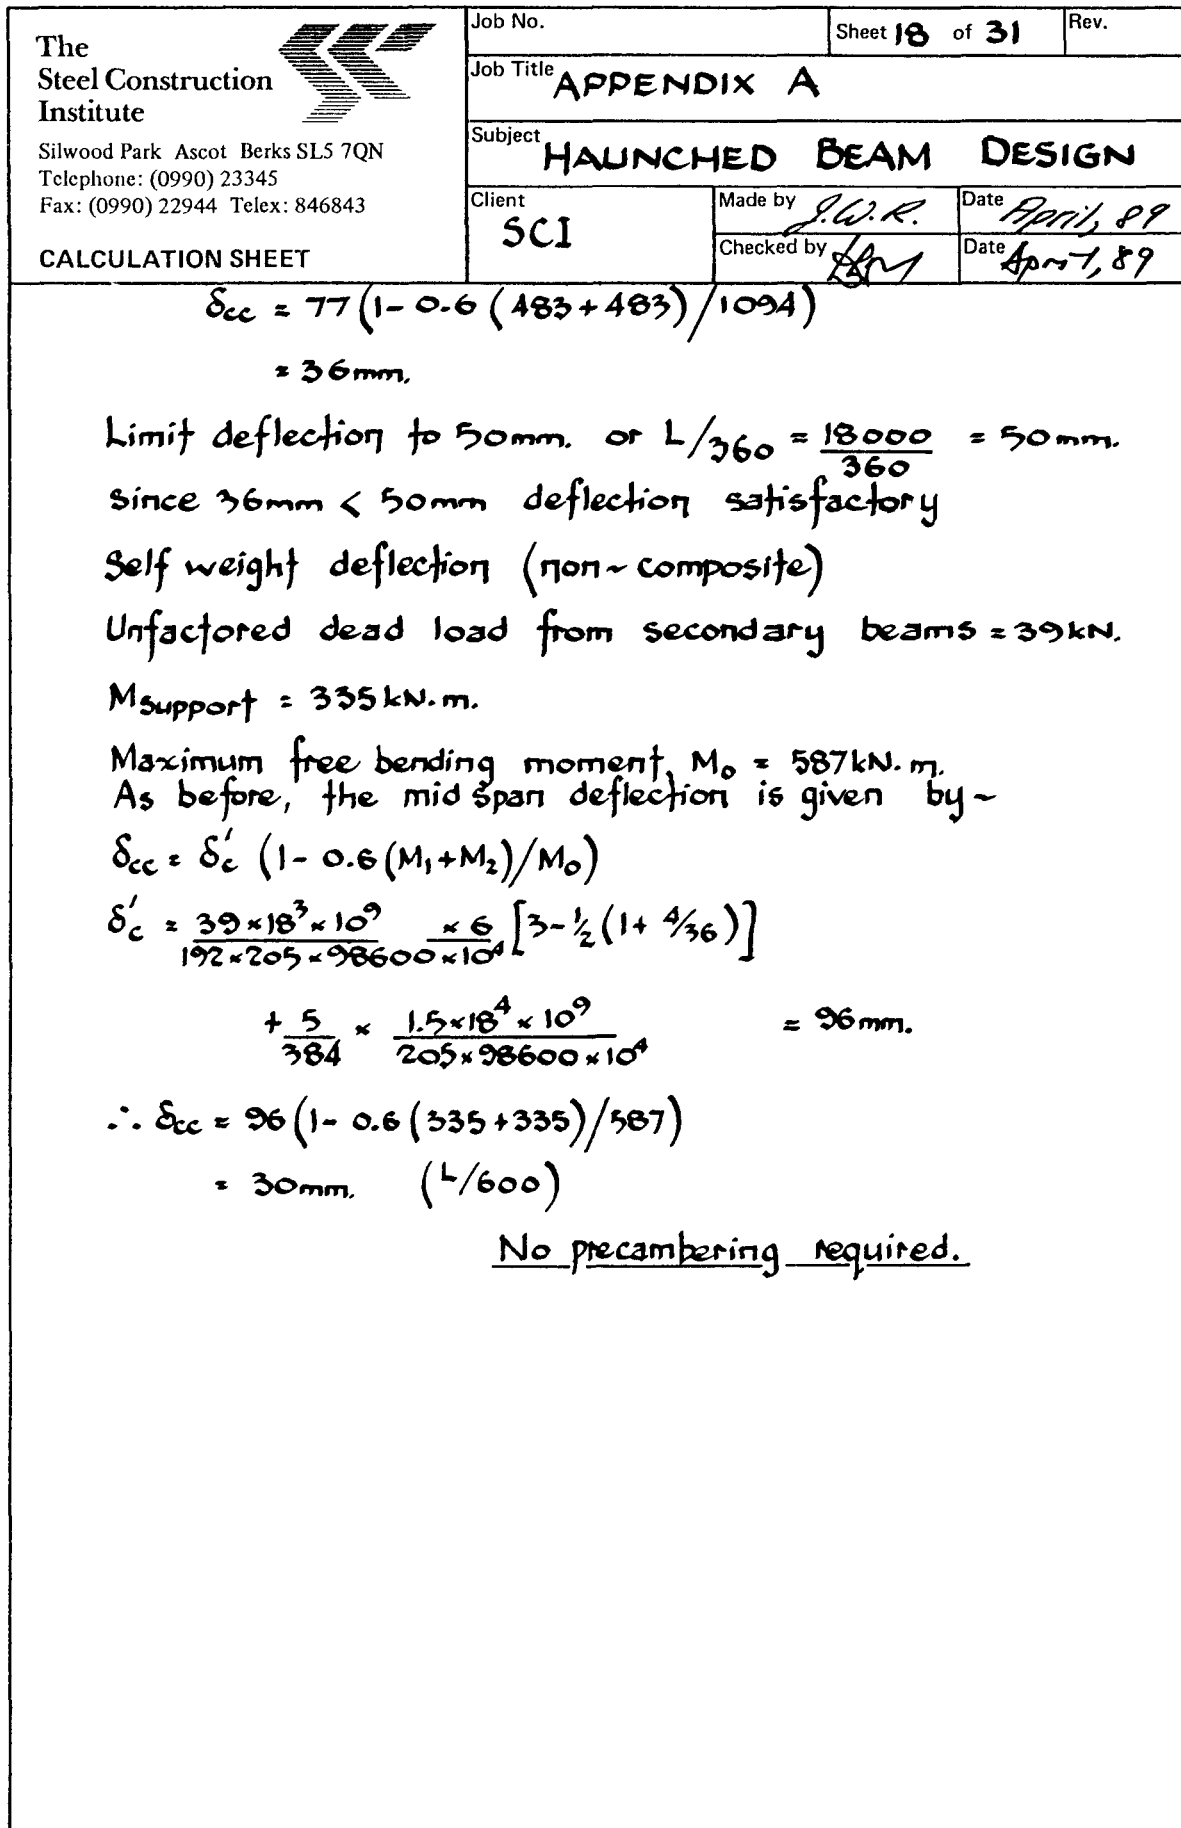 The
Steel Construction
Institute
Silwood Park Ascot Berks SL5 7QN
Telephone: (0990) 23345
Fax: (0990) 22944 Telex: 846843
CALCULATION SHEET
Job No.
Sheet 18 of 31
Rev.
Job Title APPENDIX A
Subject HAUNCHED BEAM DESIGN
Client SCI
Made by J.W.R.
Date April, 89
Checked by
Date April, 89
δcc = 77(1- 0.6 (483+483)/1094)
= 36mm.
Limit deflection to 50mm. or L/360 = 18000/360 = 50mm.
since 36mm < 50mm deflection satisfactory
Self weight deflection (non~composite)
Unfactored dead load from secondary beams = 39kN.
Msupport = 335kN.m.
Maximum free bending moment, Mo = 587kN.m.
As before, the mid span deflection is given by~
δcc = δ'c (1- 0.6(M1+M2)/Mo)
δ'c = 39×18³×10⁹/192×205×98600×10⁴ × 6 [3-½(1+ 4/36)]
+ 5/384 × 1.5×18⁴×10⁹/205×98600×10⁴ = 96mm.
∴ δcc = 96(1- 0.6(335+335)/587)
= 30mm. (L/600)
No precambering required.